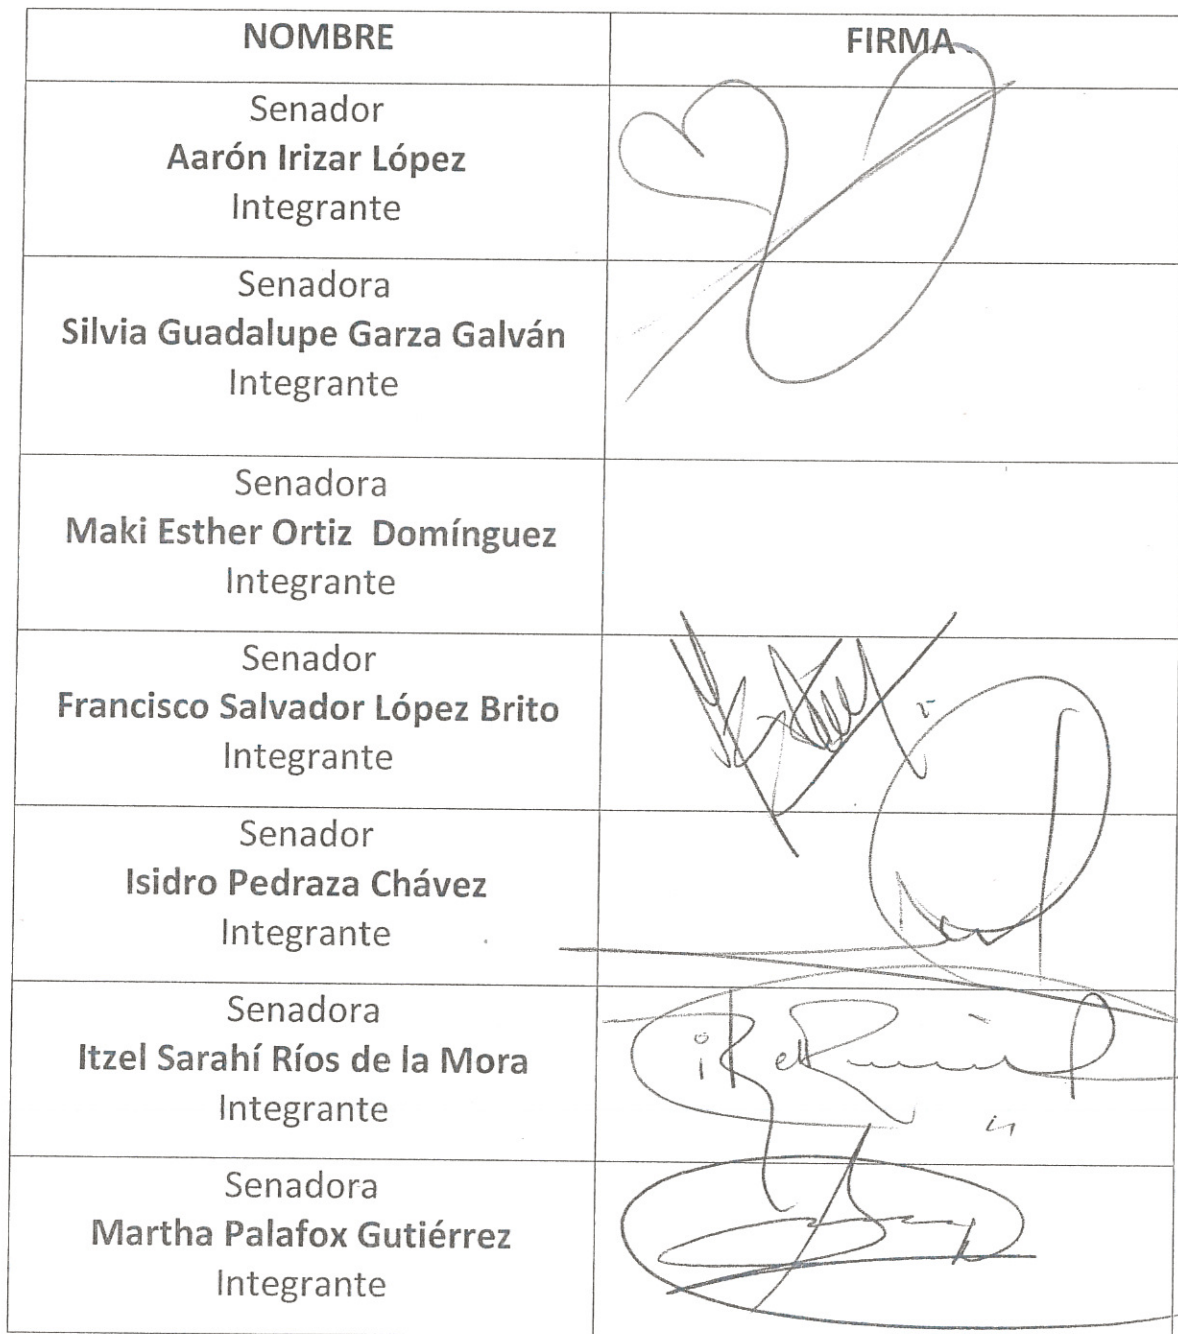 NOMBRE FIRMA
Senador
Aarón Irizar López
Integrante
Senadora
Silvia Guadalupe Garza Galván
Integrante
Senadora
Maki Esther Ortiz Domínguez
Integrante
Senador
Francisco Salvador López Brito
Integrante
Senador
Isidro Pedraza Chávez
Integrante
Senadora
Itzel Sarahí Ríos de la Mora
Integrante
Senadora
Martha Palafox Gutiérrez
Integrante